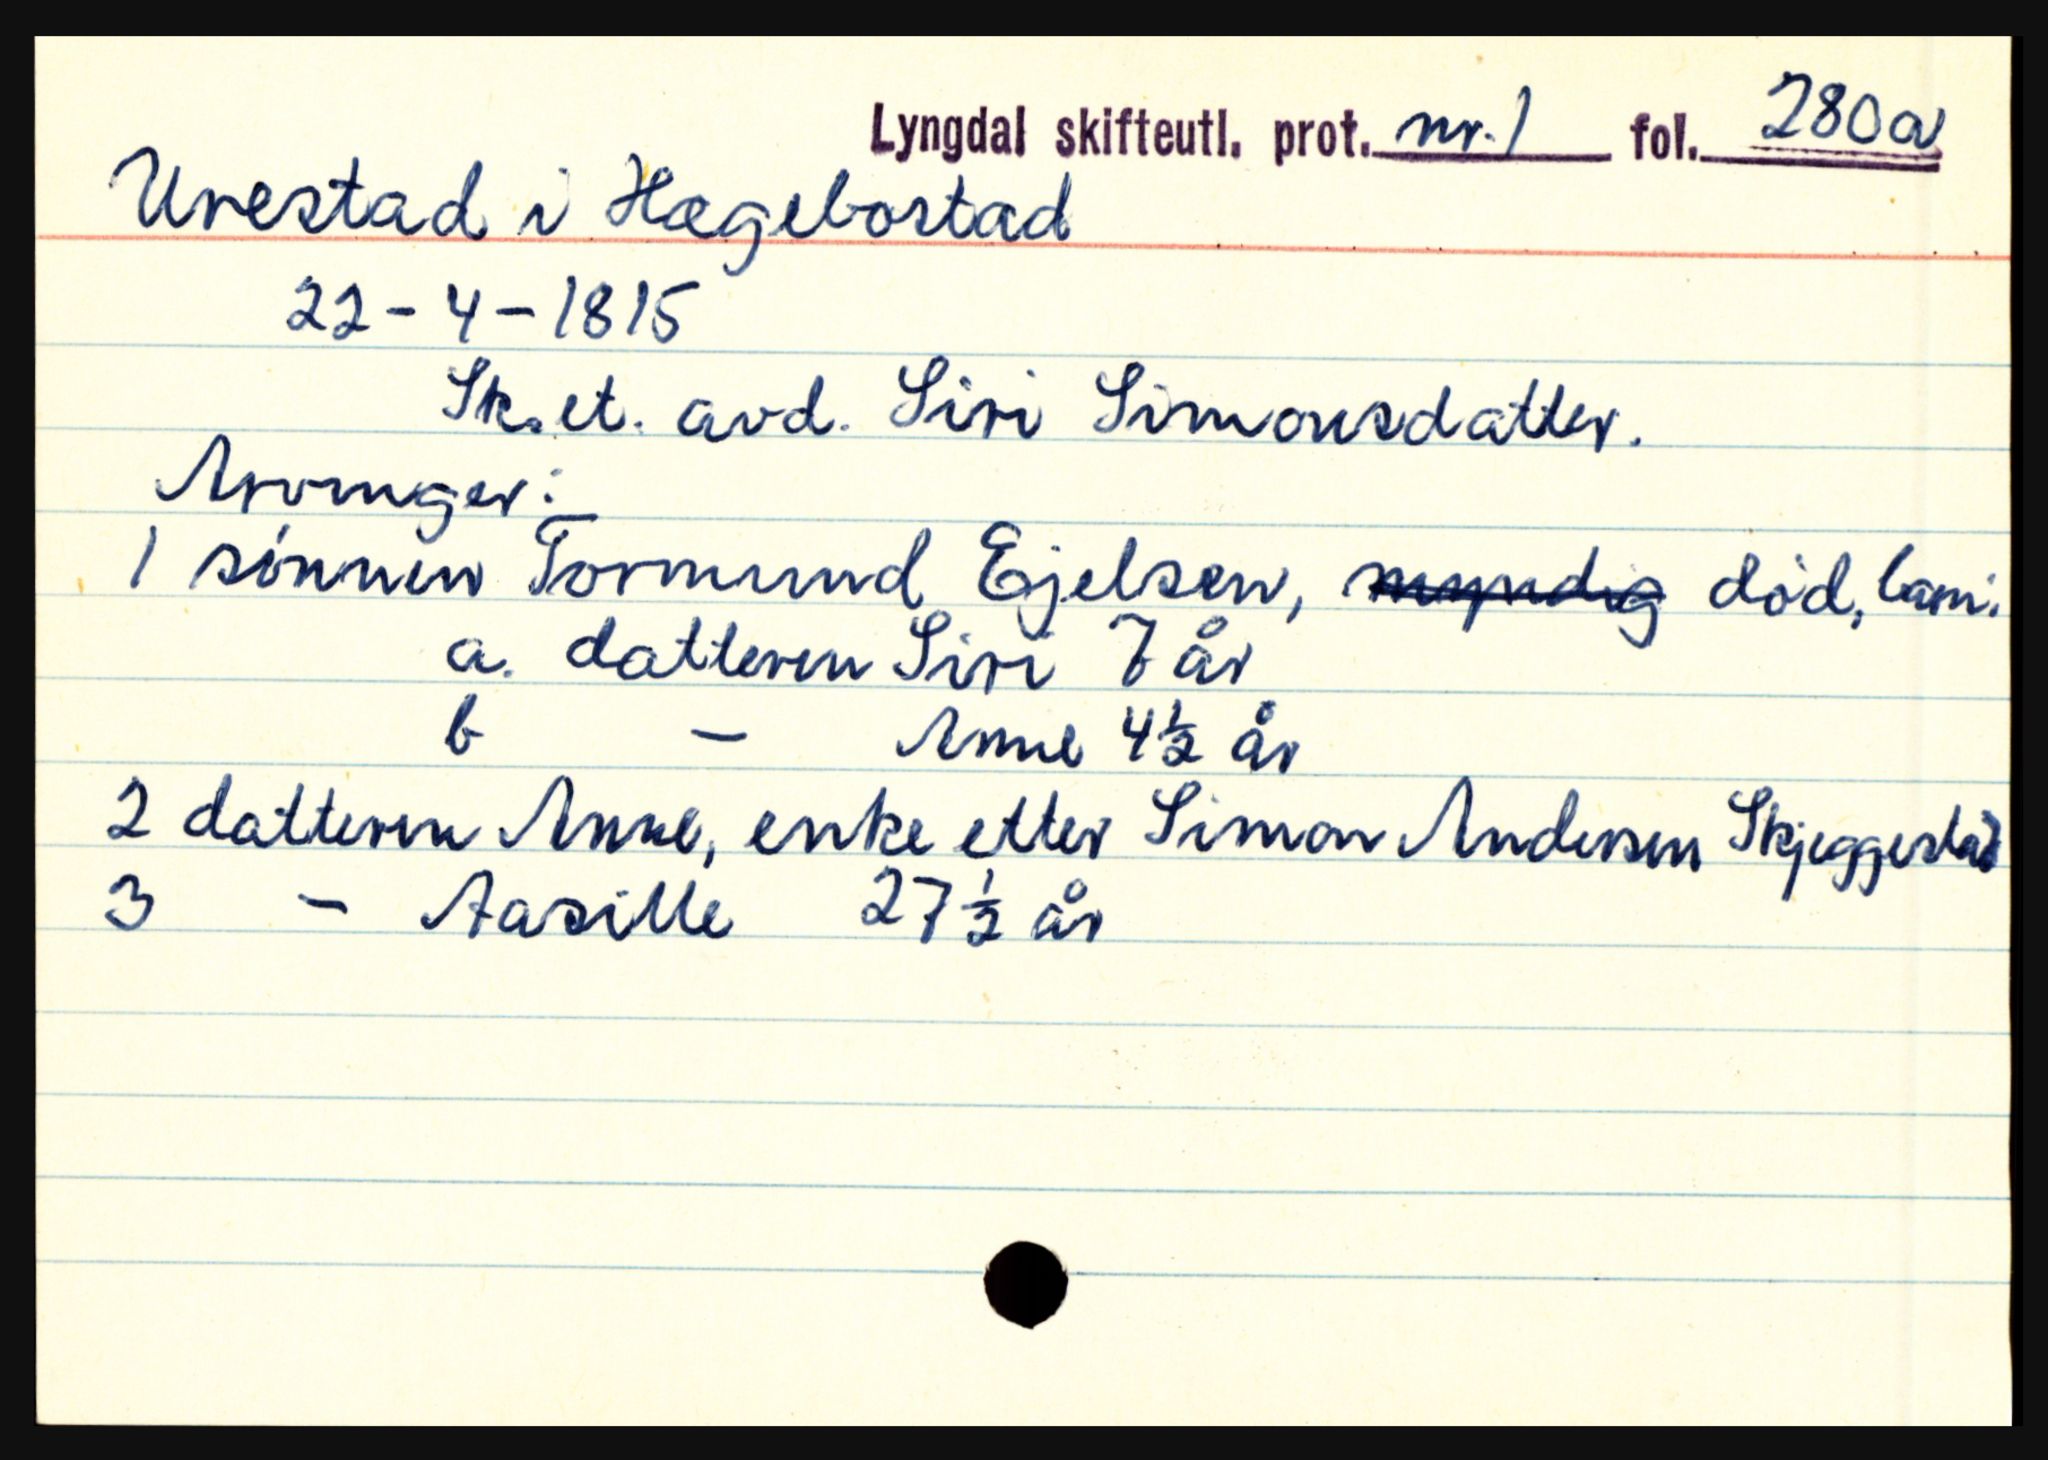 Lyngdal skifteutl. prot. nr. 1 fol. 280a
Urestad i Hægebostad
22-4-1815
Sk. et. avd. Siri Simonsdatter.
Arvinger:
1 sønnen Tormund Ejelsen, myndig død, barn:
a. datteren Siri 7 år
b - Anne 4½ år
2 datteren Anne, enke etter Simon Andersen Skjeggestad
3 - Aasille 27½ år